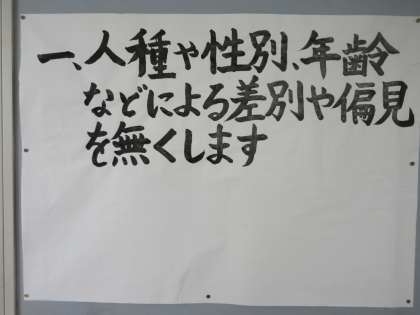 一、人種や性別、年齢
などによる差別や偏見
を無くします